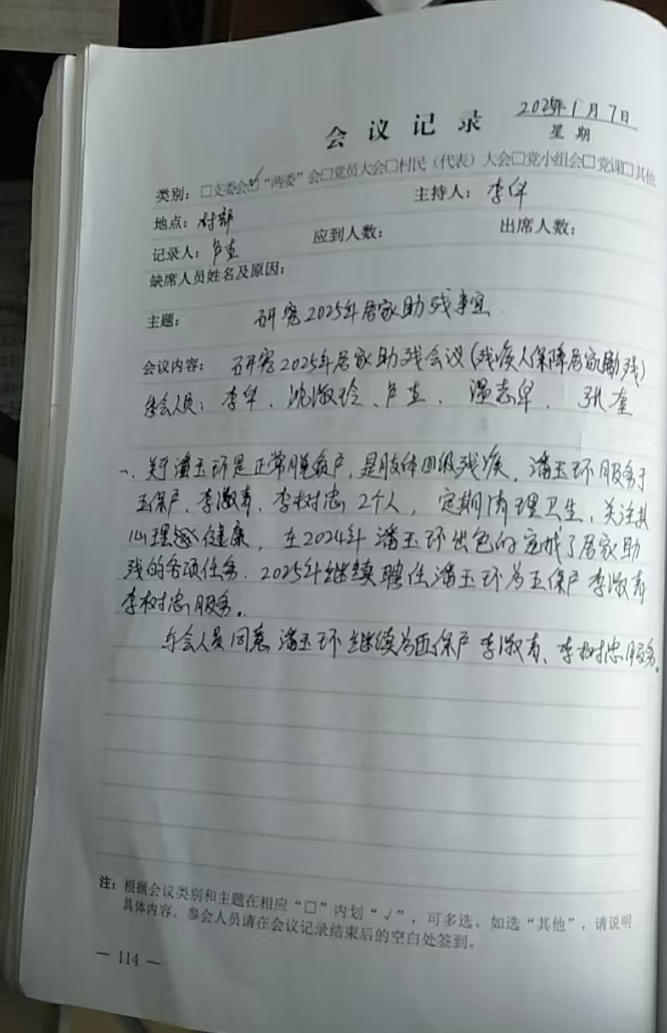 会议记录
2025年1月7日
星期
类别：□支委会☑“两委”会□党员大会□村民（代表）大会□党小组会□党课□其他
地点：村部 主持人：李华
记录人：卢直 应到人数： 出席人数：
缺席人员姓名及原因：
主题： 研究2025年居家助残事宜
会议内容： 研究2025年居家助残会议（残疾人保障居家助残）
参会人员：李华、沈淑玲、卢直、温志华、孔奎
一、关于潘玉环是正常脱贫户，是肢体四级残疾，潘玉环服务于
五保户，李淑青，李树忠2个人，定期清理卫生，关注其
心理健康，在2024年潘玉环出色的完成了居家助
残的各项任务。2025年继续聘任潘玉环为五保户李淑青
李树忠服务。
与会人员同意潘玉环继续为五保户李淑青、李树忠服务。
注：根据会议类别和主题在相应“□”内划“√”，可多选。如选“其他”，请说明
具体内容。参会人员请在会议记录结束后的空白处签到。
— 114 —